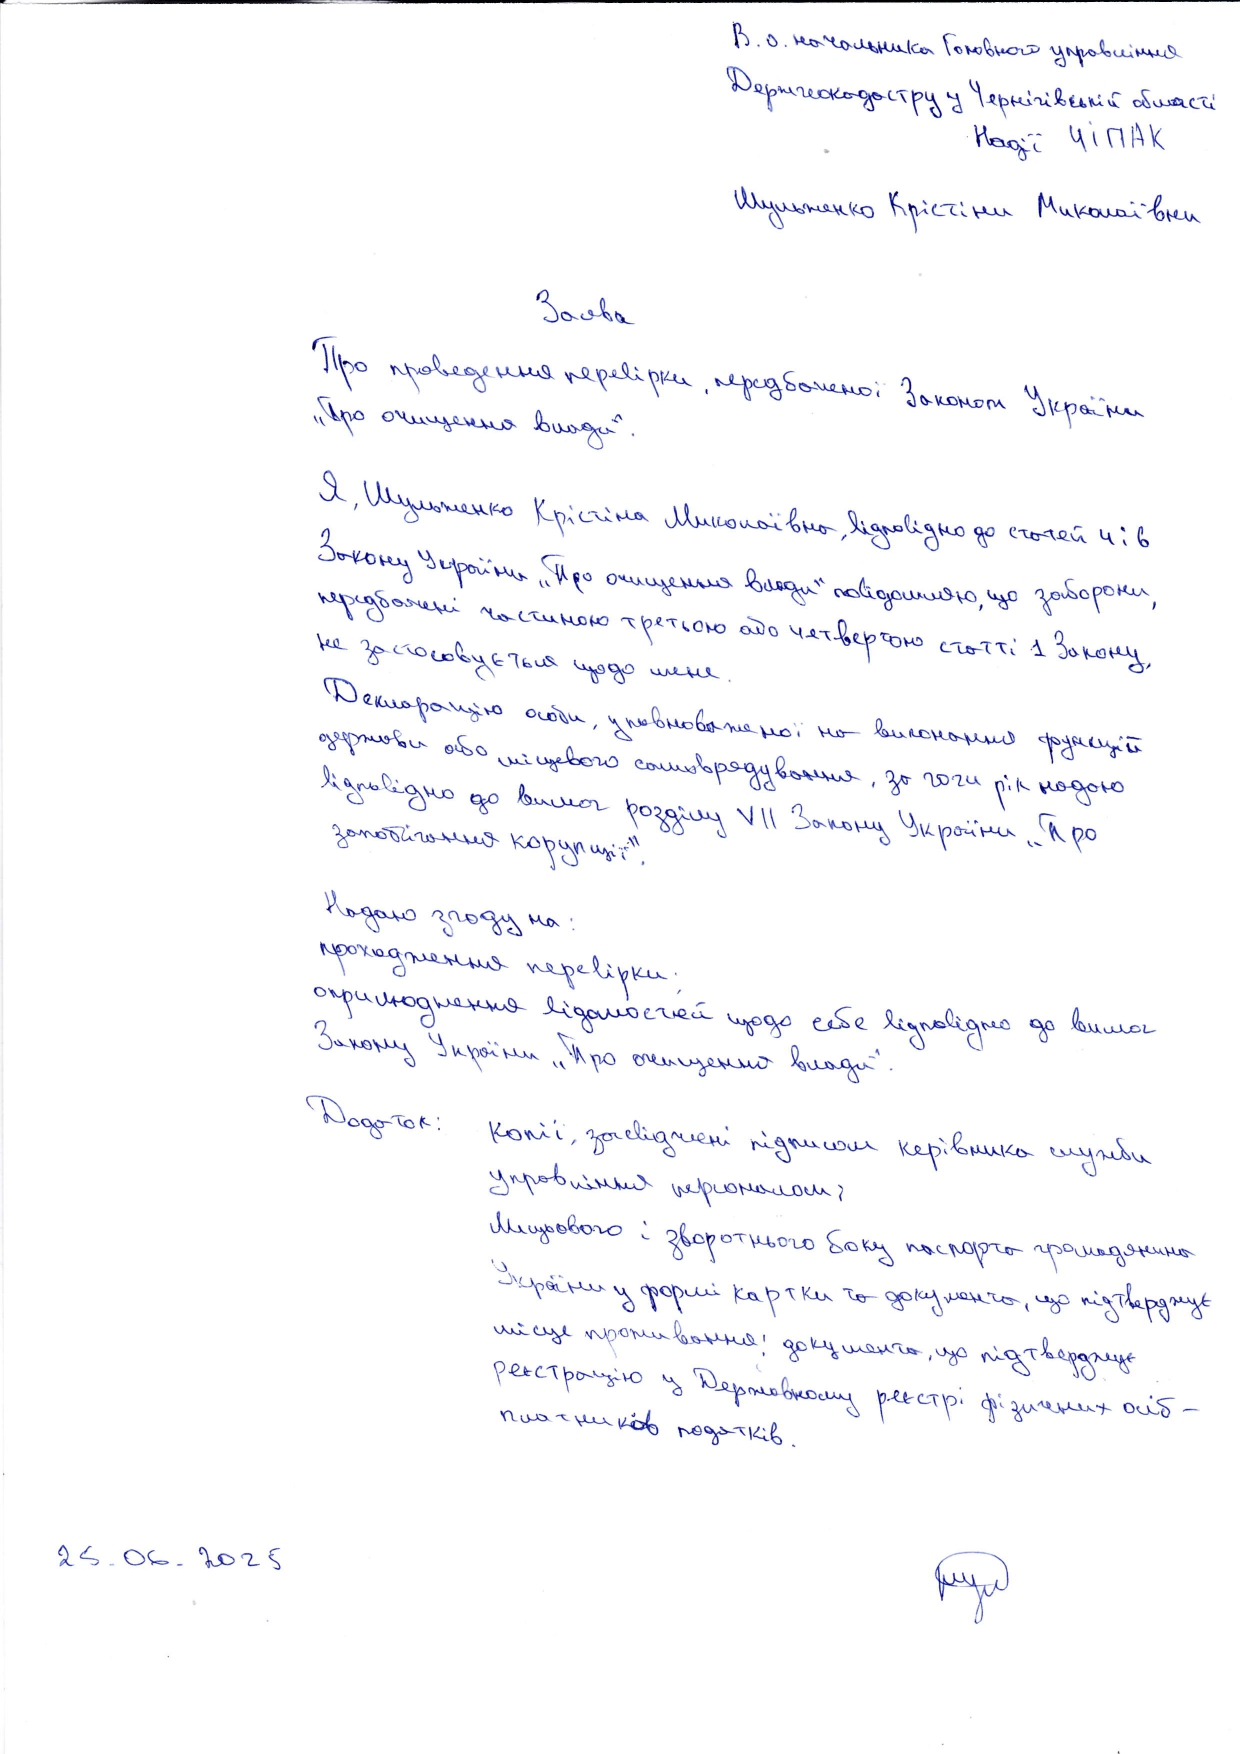 В. о. начальника Головного управління
Держгеокадастру у Чернігівській області
Надії ЧІПАК
Шульженко Крістіни Миколаївни
Заява
Про проведення перевірки, передбаченої Законом України
„Про очищення влади".
Я, Шульженко Крістіна Миколаївна, відповідно до статей 4 і 6
Закону України „Про очищення влади" повідомляю, що заборони,
передбачені частиною третьою або четвертою статті 1 Закону,
не застосовується щодо мене.
Декларацію особи, уповноваженої на виконання функцій
держави або місцевого самоврядування, за 2024 рік надаю
відповідно до вимог розділу VII Закону України „Про
запобігання корупції".
Надаю згоду на:
проходження перевірки;
оприлюднення відомостей щодо себе відповідно до вимог
Закону України „Про очищення влади".
Додаток: копії, засвідчені підписом керівника служби
управління персоналом:
Лицьового і зворотнього боку паспорта громадянина
України у формі картки та документа, що підтверджує
місце проживання; документа, що підтверджує
реєстрацію у Державному реєстрі фізичних осіб –
платників податків.
25.06.2025